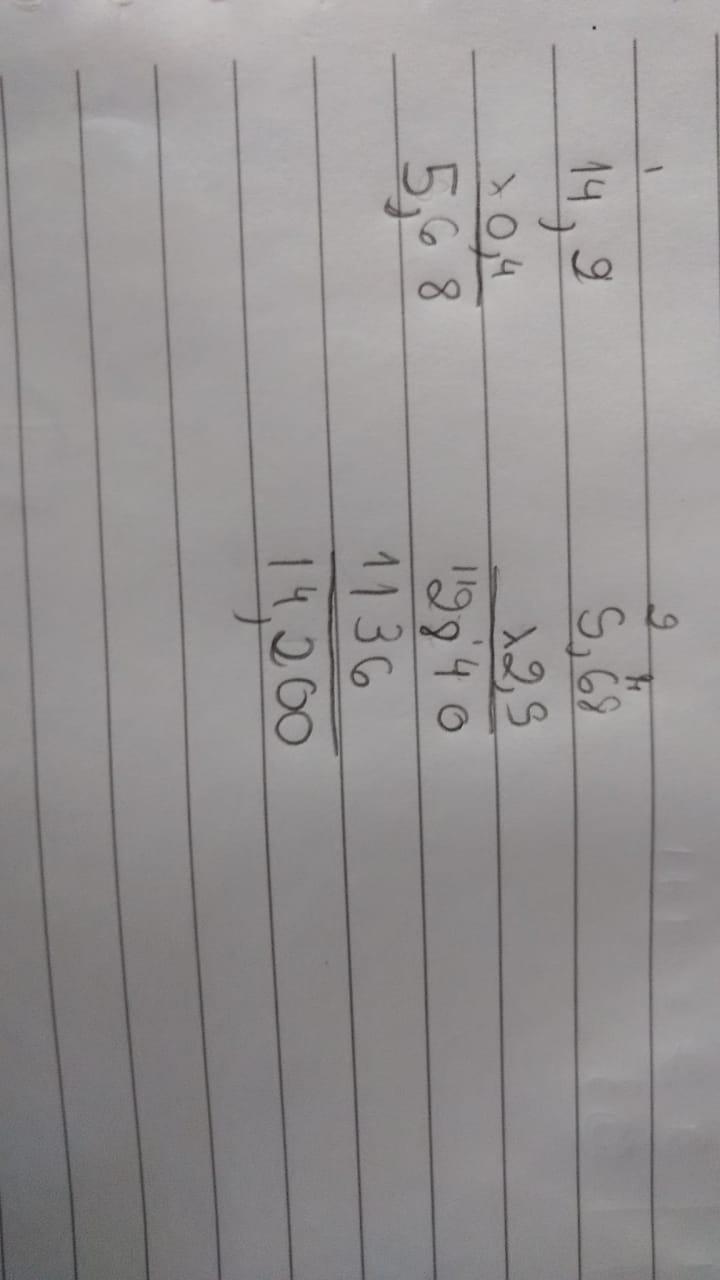 1
14,2
x0,4
5,68
5,68
x2,5
2840
1136
14,200